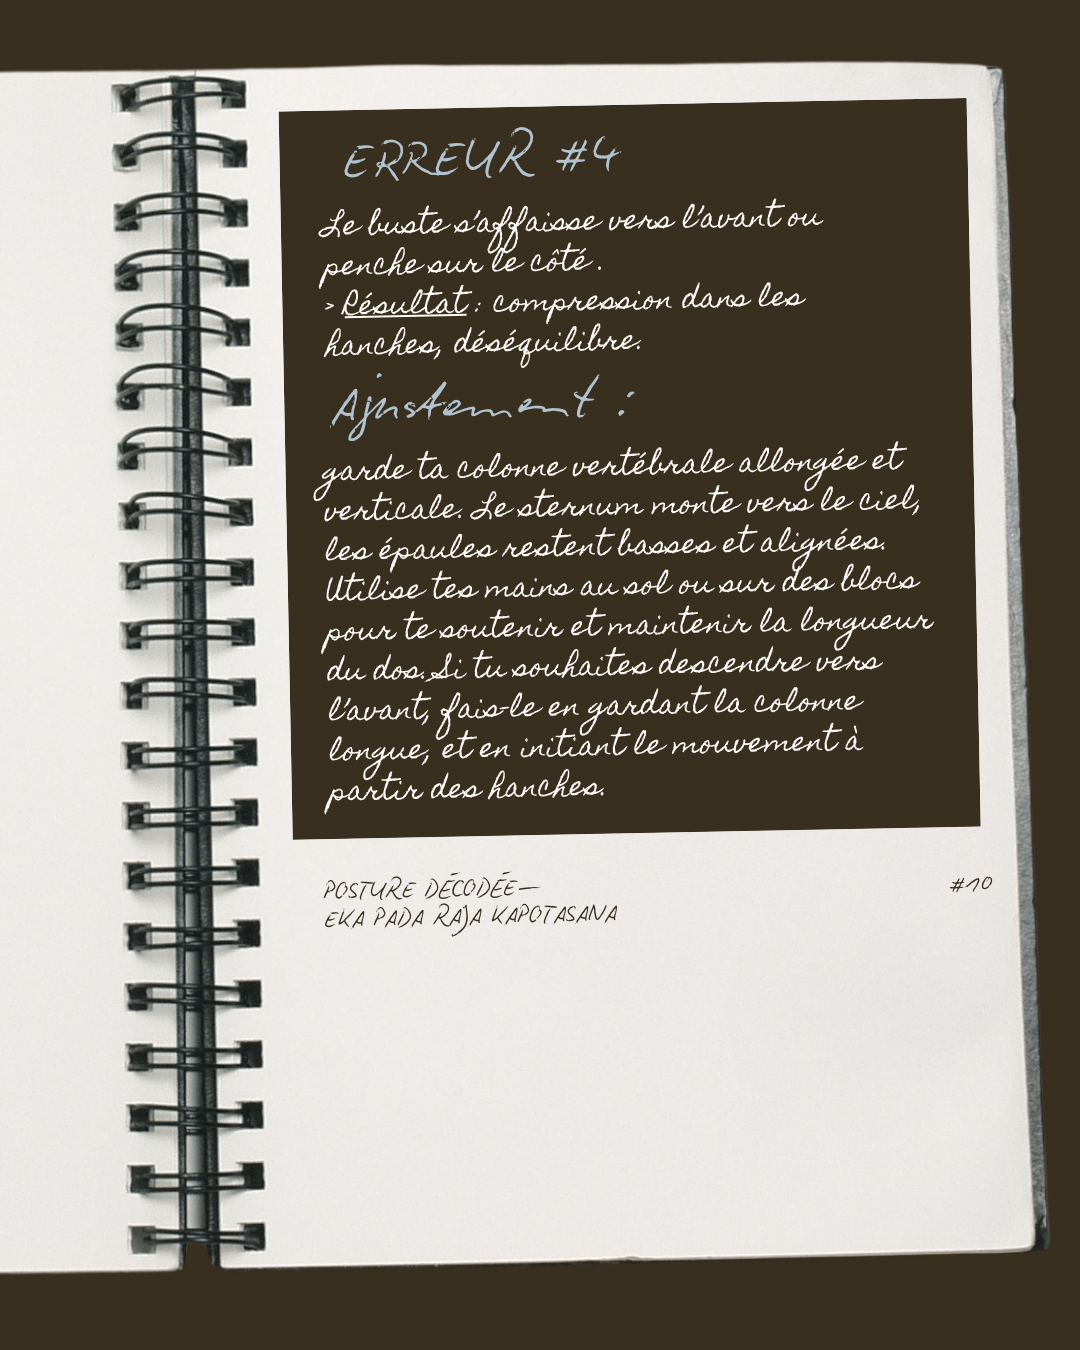 ERREUR #4
Le buste s'affaisse vers l'avant ou
penche sur le côté.
> Résultat : compression dans les
hanches, déséquilibre.
Ajustement :
garde ta colonne vertébrale allongée et
verticale. Le sternum monte vers le ciel,
les épaules restent basses et alignées.
Utilise tes mains au sol ou sur des blocs
pour te soutenir et maintenir la longueur
du dos. Si tu souhaites descendre vers
l'avant, fais-le en gardant la colonne
longue, et en initiant le mouvement à
partir des hanches.
POSTURE DÉCODÉE—
EKA PADA RAJA KAPOTASANA
#10